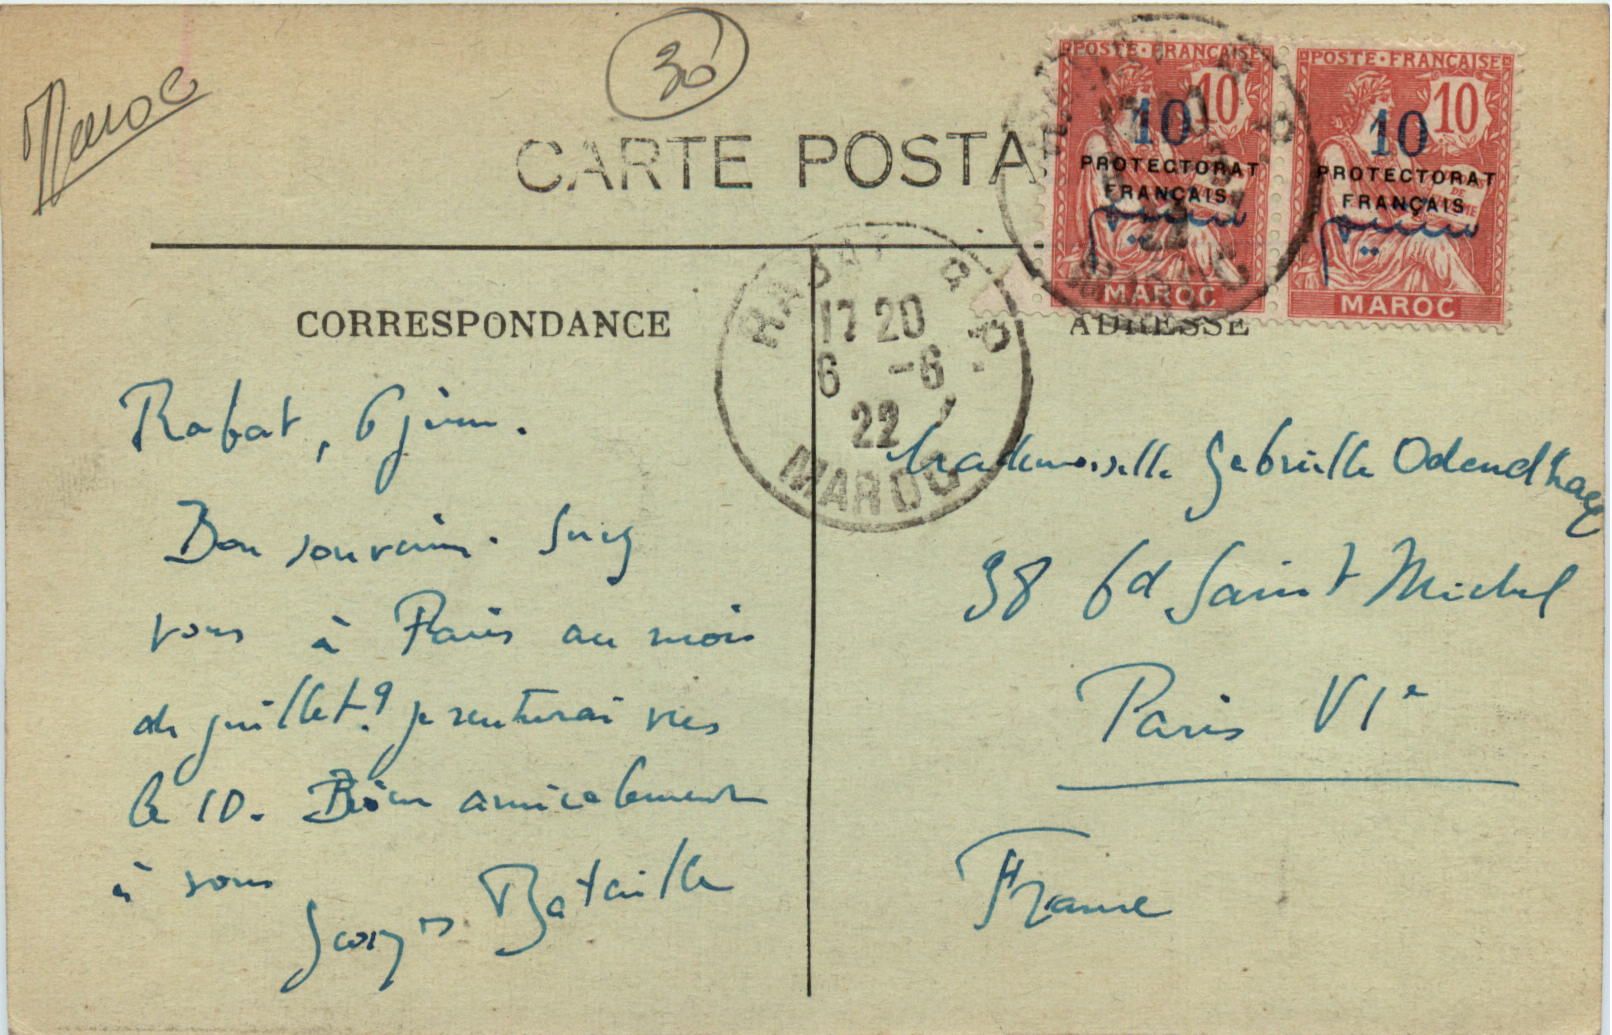 Maroc
30
CARTE POSTA
POSTE·FRANÇAISE
10
10
PROTECTORAT
FRANÇAIS
MAROC
POSTE·FRANÇAISE
10
10
PROTECTORAT
FRANÇAIS
MAROC
RABAT R.P.
17 20
6 -6
22
MAROC
CORRESPONDANCE
Rabat, 6 juin.
Bon souvenir. Serez
vous à Paris au mois
de juillet? je rentrerai vers
le 10. Bien amicalement
à vous
Georges Bataille
ADRESSE
Mademoiselle Gabrielle Odendhal
38 bd Saint Michel
Paris VIe
France